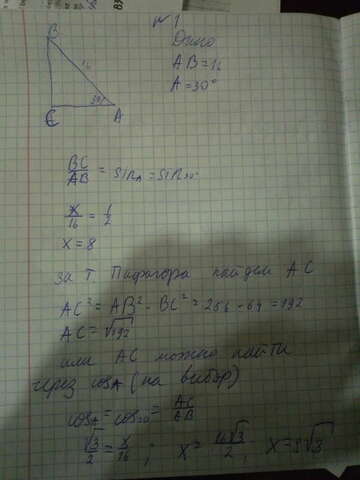 № 1
Дано
AB=16
A=30°
B
16
30°
C
A
BC/AB = sin A = sin 30°
x/16 = 1/2
x = 8
за т. Пифагора найдем AC
AC² = AB² - BC² = 256 - 64 = 192
AC = √192
или AC можно найти
через cos A (на выбор)
cos A = cos 30 = AC/AB
√3/2 = x/16 ; x = 16√3/2 ; x = 8√3